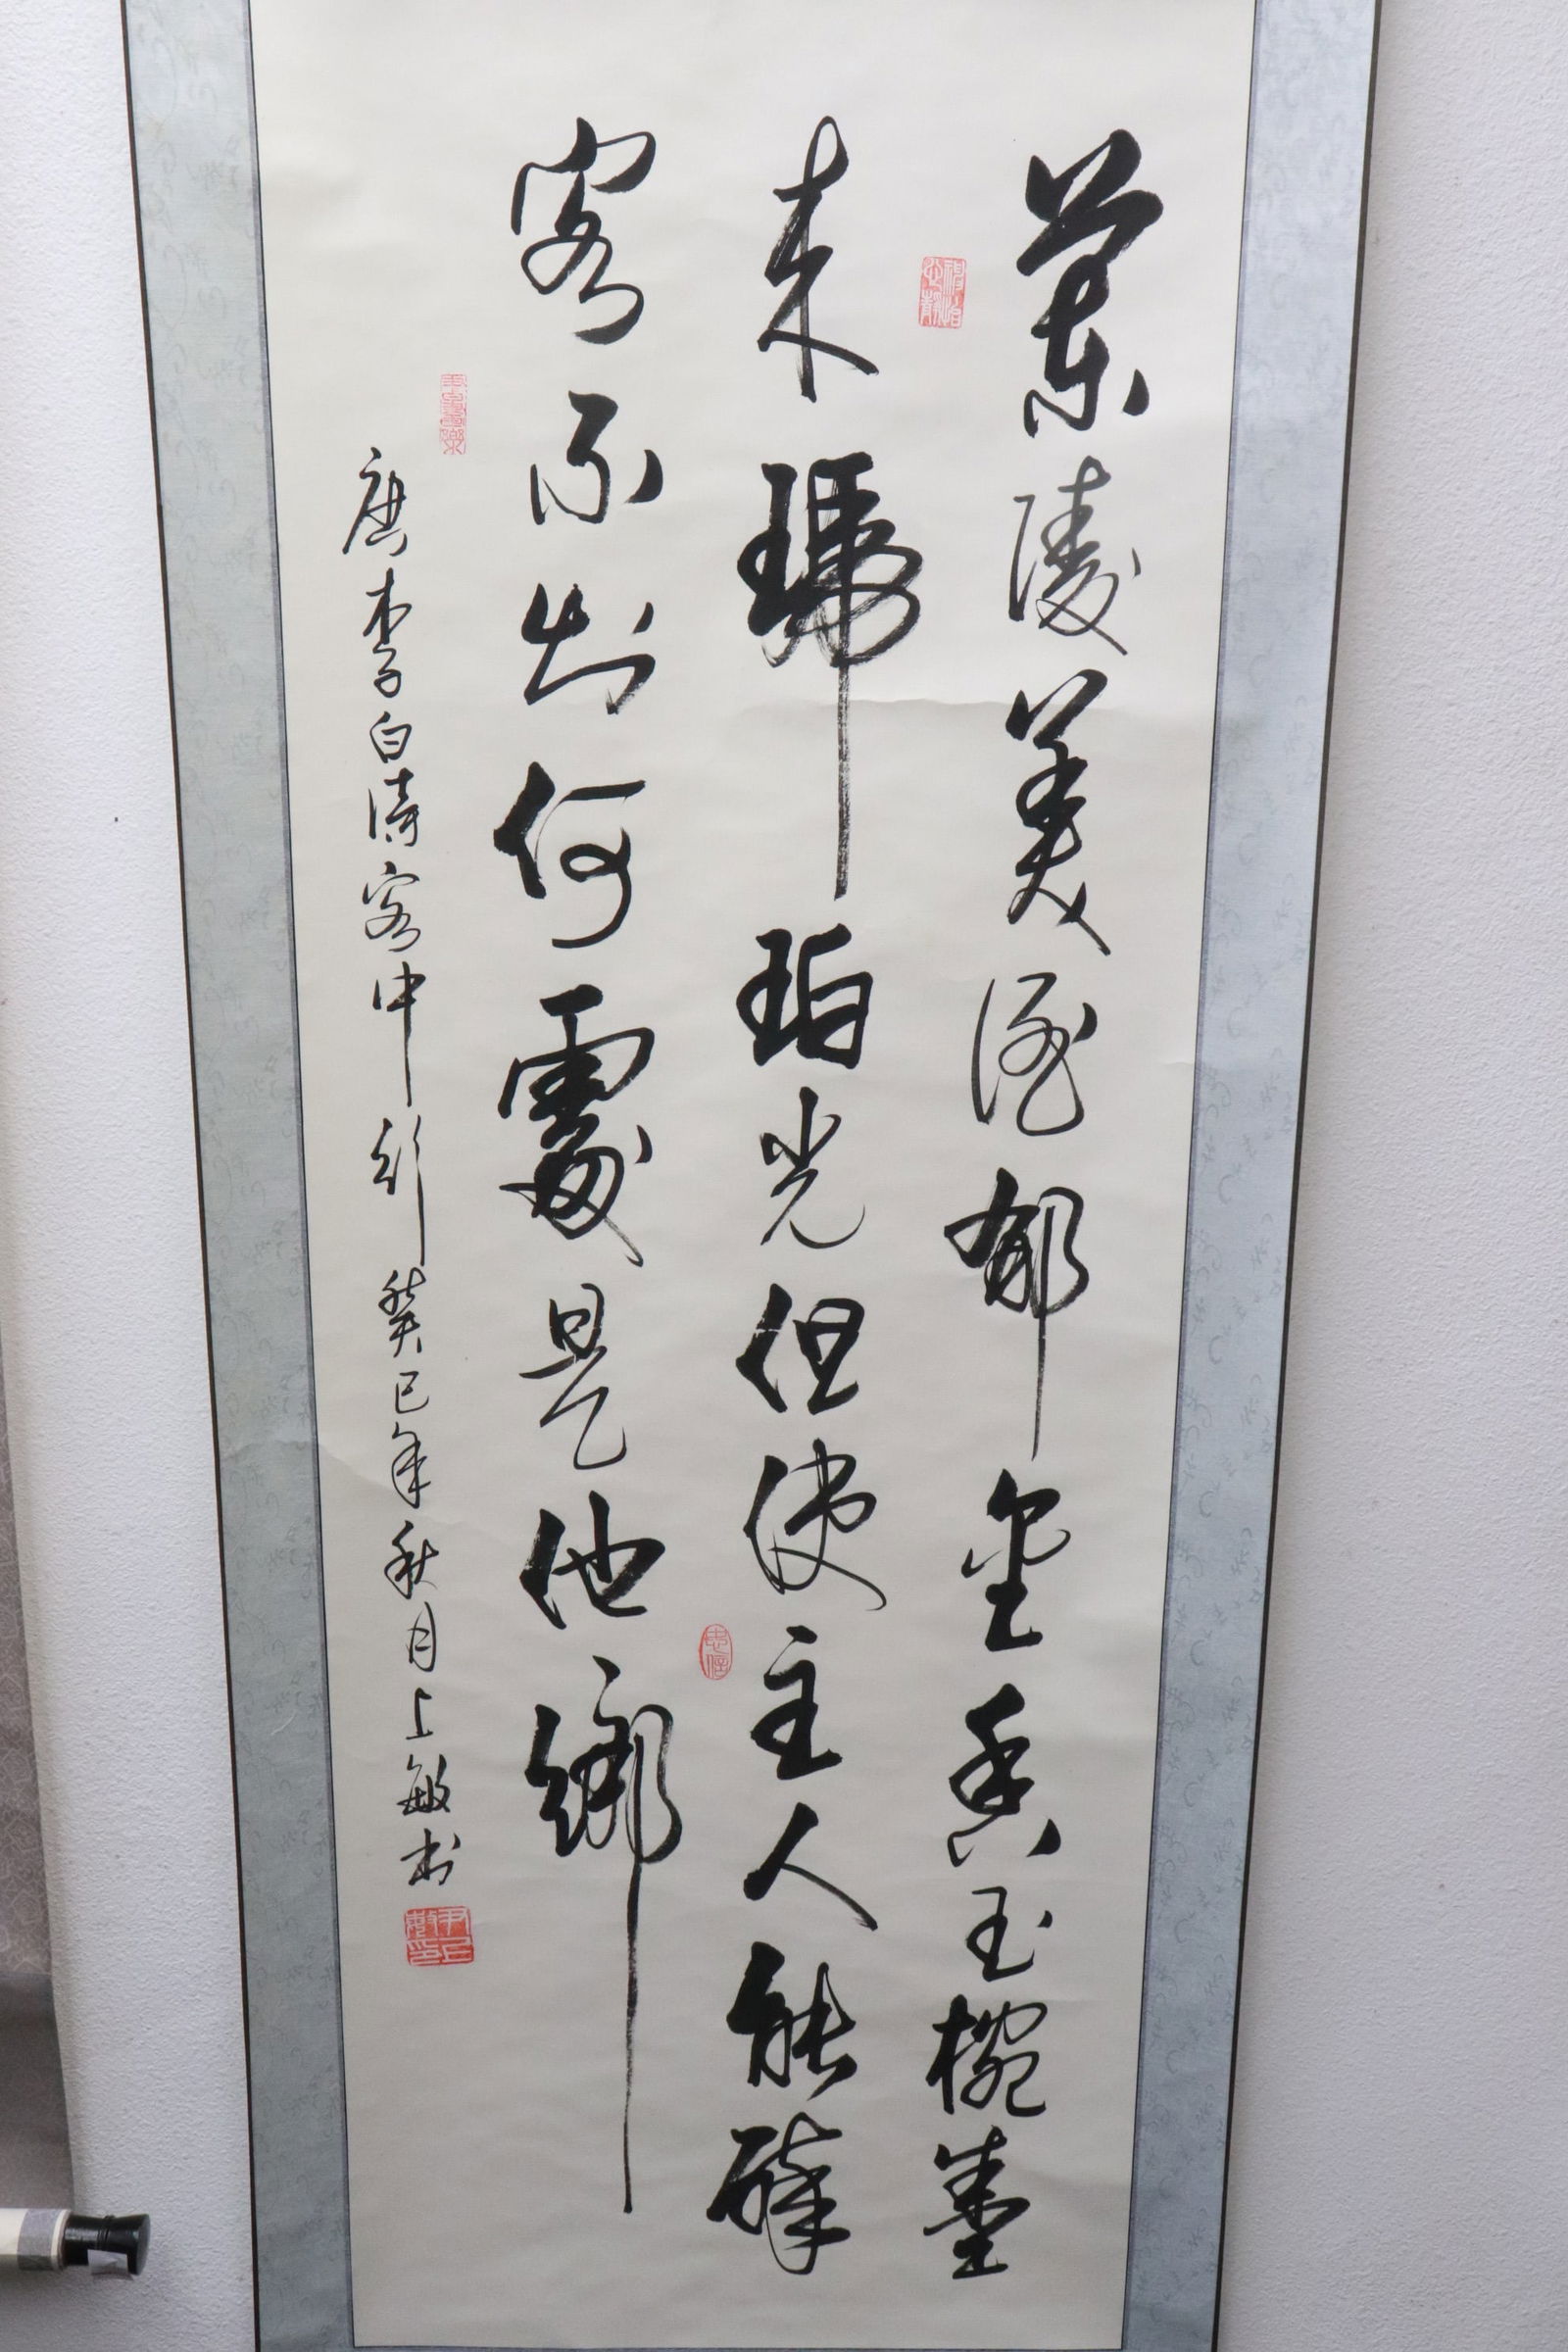 蘭陵美酒郁金香玉椀盛
来琥珀光但使主人能醉
客不知何處是他鄉
唐李白詩客中行 癸巳年秋月上敏书
忠信